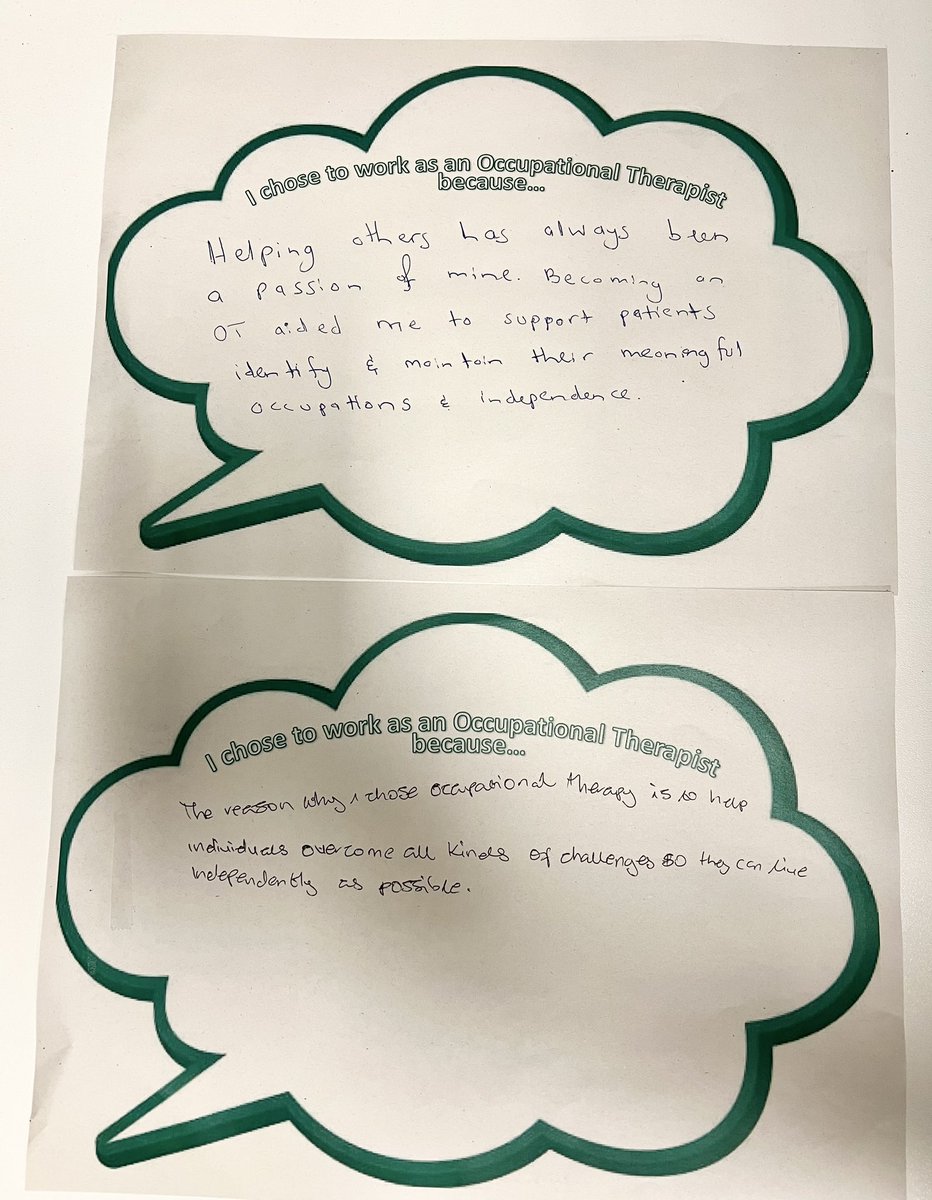 I chose to work as an Occupational Therapist
because...
Helping others has always been
a passion of mine. Becoming an
OT aided me to support patients
identify & maintain their meaningful
occupations & independence.
I chose to work as an Occupational Therapist
because...
The reason why I chose occupational therapy is to help
individuals overcome all kinds of challenges so they can live
independently as possible.